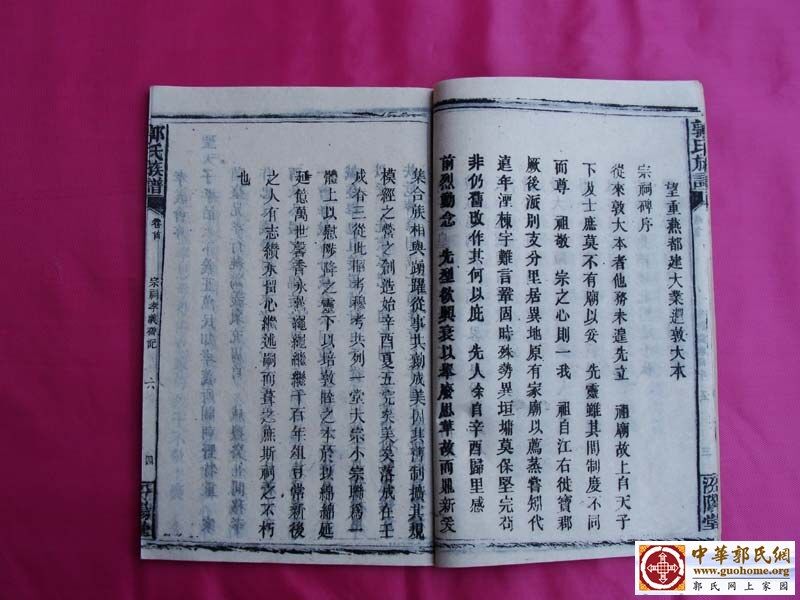 望重燕都建大業週敦大本
宗祠碑序
從來敦大本者他務未遑先立 祖廟故上自天子
下及士庶莫不有廟以妥 先靈雖其間制度不同
而尊 祖敬 宗之心則一我 祖自江右徙寶郡
厥後派別支分里居異地原有家廟以薦蒸嘗矧代
遠年湮棟宇難言鞏固時殊勢異垣墉莫保堅完苟
非仍舊改作其何以庇 先人余自辛酉歸里感
前烈動念 先型欲興衰以舉廢思革故而鼎新爰
集合族相與踴躍從事共勷成美因其舊制擴其規
模經之營之創造始辛酉夏五完矣美矣落成在壬
戌春三從此昭考穆考共列一堂大宗小宗聯為一
體上以慰陟降之靈下以培敦睦之本於以綿綿延
延億萬世馨香永薦繩繩繼繼千百年俎豆常新後
之人有志纘承留心繼述嗣而葺之庶斯祠之不朽
也
郭氏族譜
卷首
六
四
郭氏族譜
三
汾陽堂
中華郭氏网
www.guohome.org
郭氏网上家园